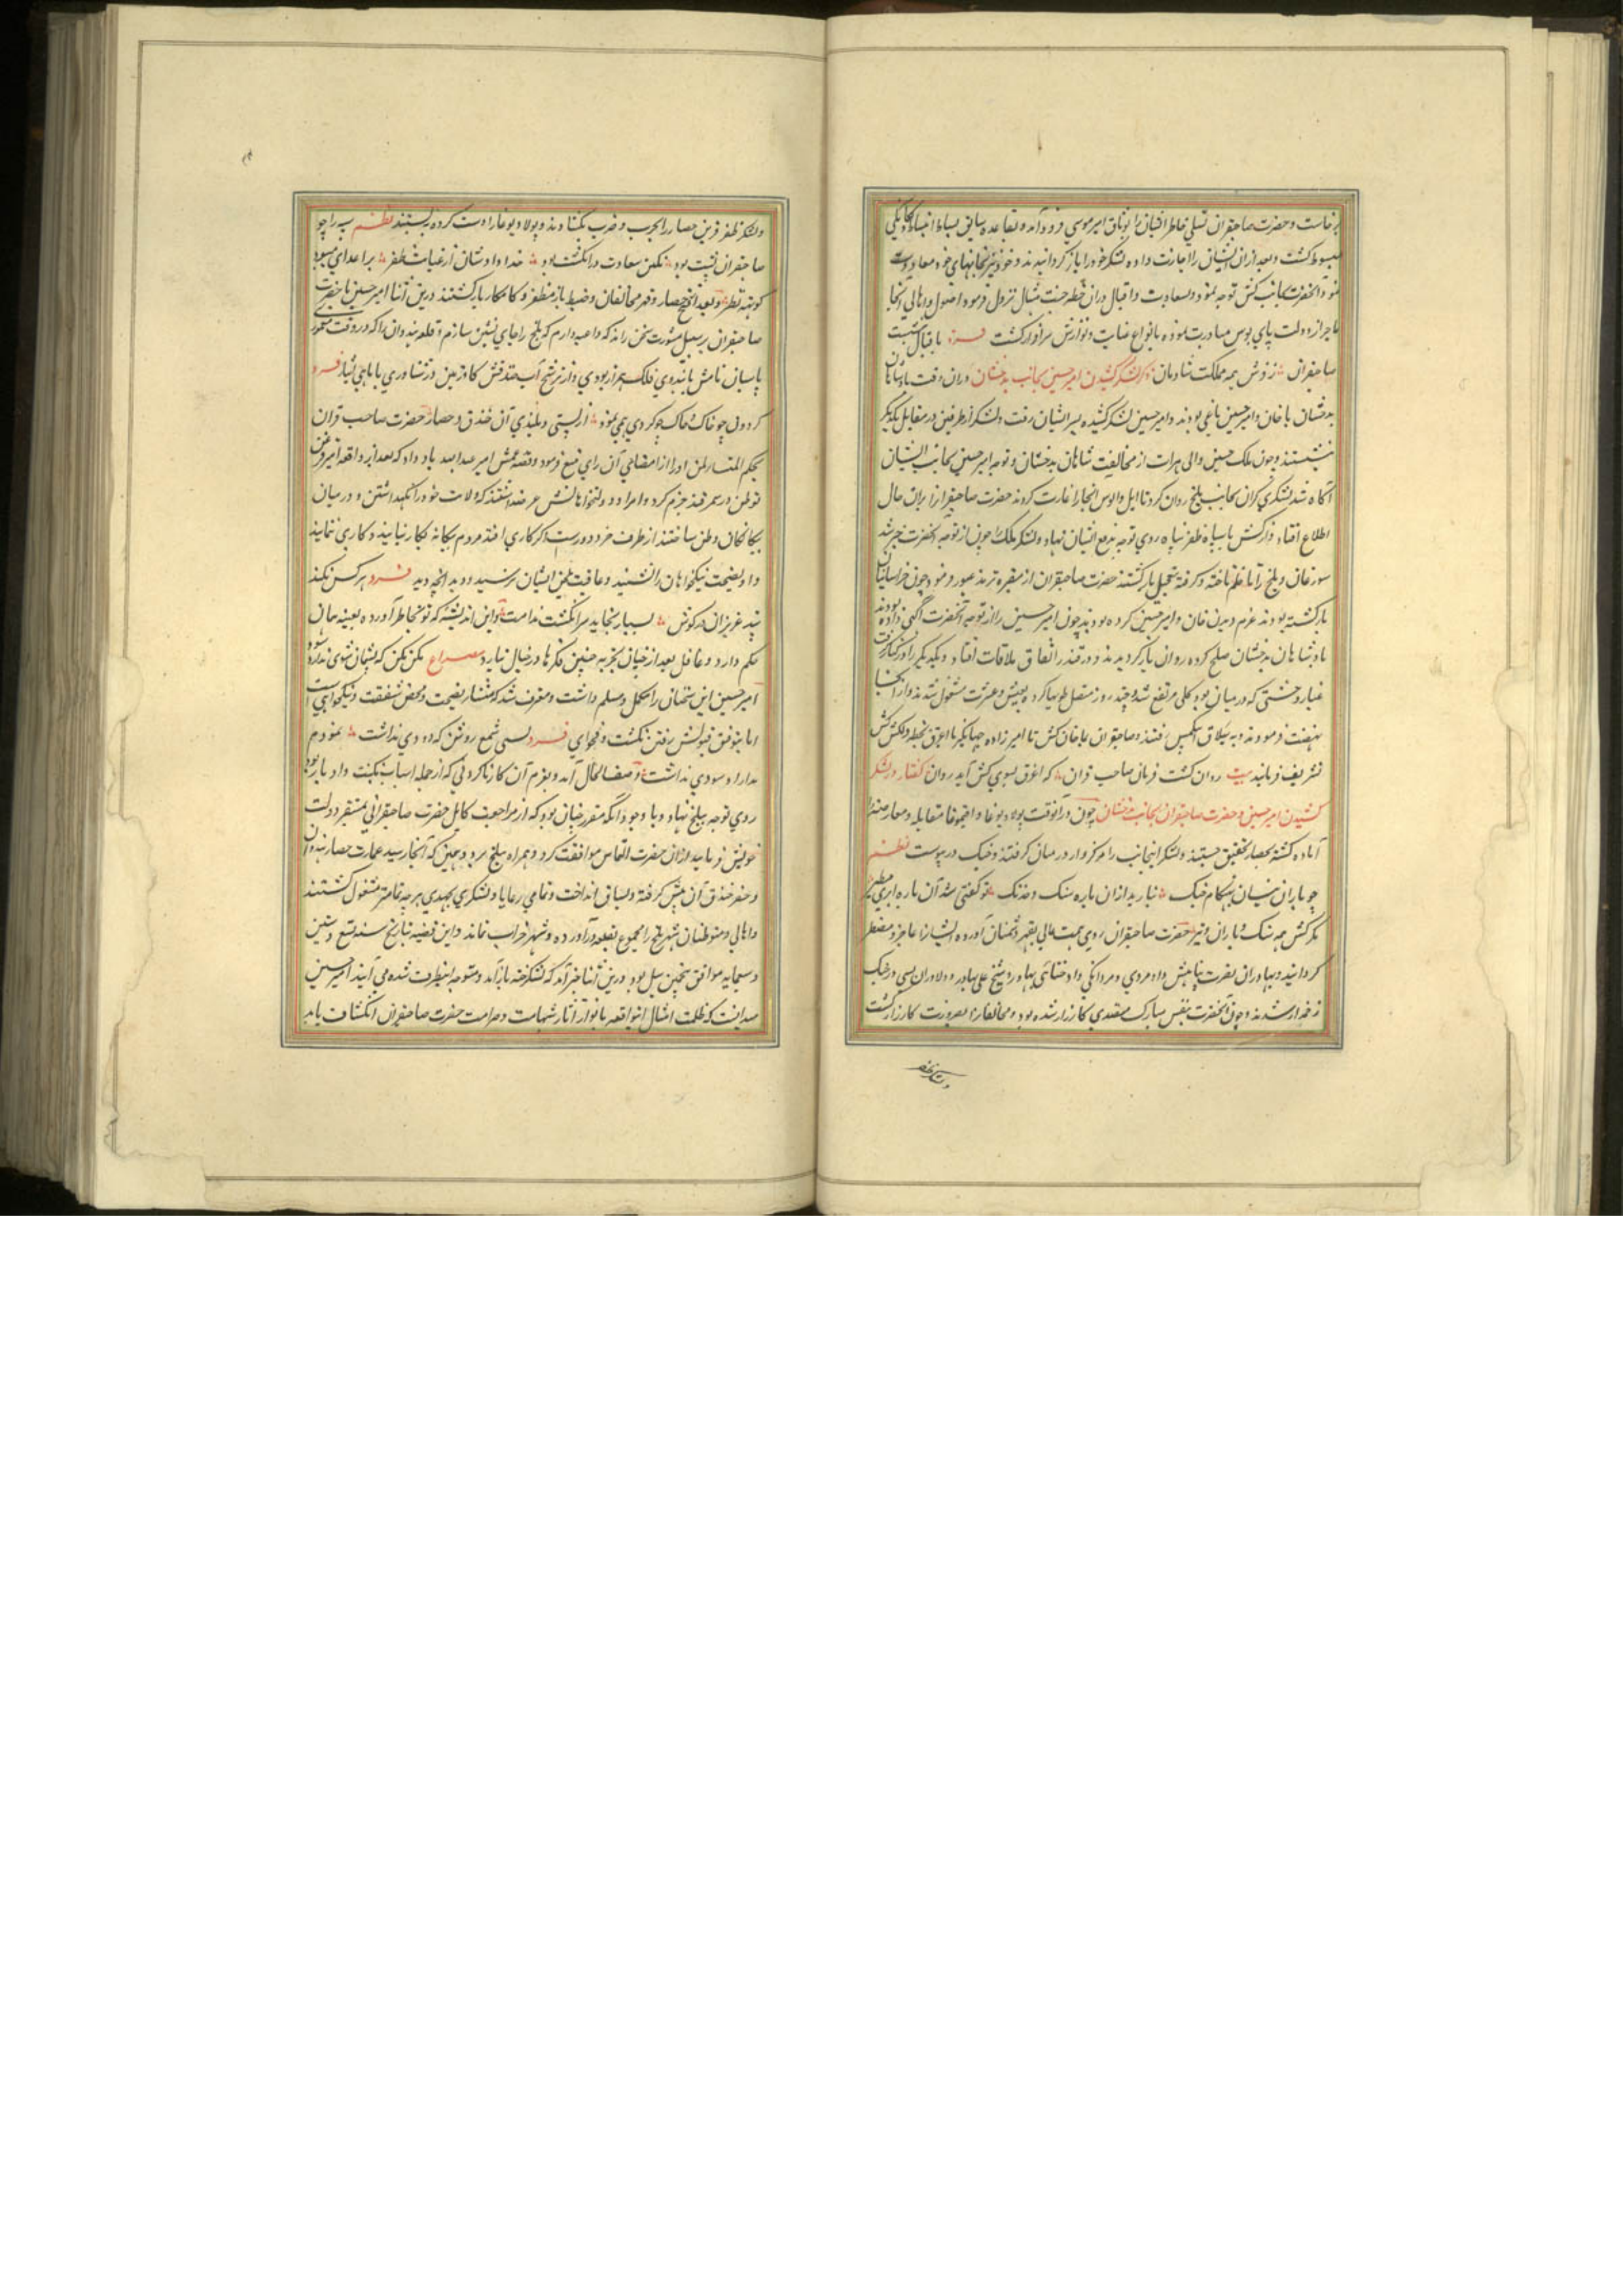 برخاست و حضرت صاحبقران تسلی خاطر ایشان را بوثاق امیر موسی فرود آمد و بقاعده سابق بساط انبساط و یکانکی
مبسوط کشت و بعد ازان ایشان را اجازت داده لشکر خود را باز کردانیدند و خود نیز بخانهای خود معاودت
نمود و آنحضرت بجانب کش توجه نمود و بسعادت و اقبال دران خطه جنت مثال نزول فرمود اصول و اهالی آنجا
باحراز دولت پای بوس مبادرت نموده بانواع عنایت و نوازش سرافراز کشت فرد باقبال
صاحبقران زنوش همه مملکت شادمان ذکر لشکر کشیدن امیر حسین بجانب بدخشان دران وقت پادشاهان
بدخشان با خان و امیر حسین یاغی بودند و امیر حسین لشکر کشیده بسر ایشان رفت و لشکر از طرفین در مقابل یکدیکر
بنشستند و چون ملک حسین والی هرات از مخالفت شاهان بدخشان و توجه امیر حسین بجانب ایشان
آکاه شد لشکری کران بجانب بلخ روان کرد تا ایل و الوس انجا را غارت کردند حضرت صاحبقران را بران حال
اطلاع افتاد و از کش با سپاه ظفر پناه روی توجه بدفع ایشان نهاد و لشکر ملک چون از توجه آنحضرت خبر شد
بلخ را تا خلم تاخته و کرفته بتعجیل بازکشتند حضرت صاحبقران از معبره ترمذ عبور فرمود و چون خراسانیان
بازکشته بودند عزم دیدن خان و امیر حسین کرده بودند چون امیر حسین را از توجه آنحضرت آکهی داده بودند
با پادشاهان بدخشان صلح کرده روان باز کردیدند و در قندز اتفاق ملاقات افتاد و یکدیکر را در کنار کرفت
غبار وحشتی که در میان بود بکلی مرتفع شد و چند روز متصل طویها کرده بعیش و عشرت مشغول شدند و از آنجا
نهضت فرمودند و به ییلاق اشکمش رفتند و صاحبقران با خان کش تا امیرزاده جهانکیر با اغرق بخطه دلکش کش
تشریف فرمایند بیت روان کشت فرمان صاحب قران که اغرق بسوی کش آید روان کفتار در لشکر
کشیدن امیر حسین و حضرت صاحبقران بجانب بدخشان چون در آنوقت پولاد بوغا و آقبوغا مقابله و معارضه را
آماده کشته بحصار تحقیق جستند و لشکر اینجانب را مرکزوار در میان کرفتند و جنک در پیوست نظم
چو باران نیسان بهنکام جنک ببارید ازان باره سنک و خدنک تو کفتی شد آن باره ابری مطیر
مکر کش همه سنک و باران و تیر حضرت صاحبقران روی همت عالی بقهر دشمنان آورده ایشان را عاجز و مضطر
کردانید و بهادران نصرت پناهش داد مردی و مردانکی داد خطائی بهادر و شیخ علی بهادر و دلاوران بسی در جنک
زخمدار شدند و چون آنحضرت بنفس مبارک متصدی کارزار شده بود و مخالفان را بصرورت کارزار کشت
ولشکر ظفر
ولشکر ظفر قرین حصار را بحرب و ضرب بکشادند و پولاد بوغا را دست کرده ببستند نظم
صاحبقران نیت بود نکین سعادت در انکشت بود خداداد و شان از غیاث ظفر بر اعدای
کوتهه نظر و بعد از فتح حصار و قهر مخالفان و ضبط باز مظفر و کامکار بازکشتند درین اثنا امیر حسین با حضرت
صاحبقران بر سبیل مشورت سخن راند که داعیه دارم که بلخ را جای نشین سازم و قلعه هندوان را که در رفعت
پاسبان بامش با هندوی فلک همراز بودی و از ترشح آب خندقش کاو زمین در شناوری با ماهی انباز فرد
کردون چو خاک و خاک چو کردون همی نمود از پستی و بلندی آن خندق و حصار حضرت صاحب قران
بحکم المستشار مؤتمن او را از امضای آن رای منع فرمود و قصه عمش امیر عبدالله یاد داد که بعد از واقعه امیر قزغن
توطن در سمرقند جزم کرد و امرا و دولتخواهانش عرضه داشتند که ولایت خود را نکهداشتن و در میان
بیکانکان وطن ساختن از طرف خرد دورست اکر کاری افتد مردم بیکانه بکار نیایند و کاری ننمایند
و او نصیحت نیکخواهان را نشنید و عاقبت بسخن ایشان نرسید و دید انچه دید فرد هر کس نکند
پند عزیزان در کوش بسیار بخاید سر انکشت ندامت و این اندیشه که تو بخاطر آورده بعینه همان
حکم دارد و عاقل بعد از چنان تجربه چنین فکرها در خیال نیارد مصراع مکن مکن که پشیمان شوی ندارد سود
امیر حسین این سخنان را مکمل و مسلم داشت و معترف شد که منشاء نصیحت و محض شفقت و نیکخواهی است
اما بتوفیق قبولش رفتن نکشت و فحوای فرد بسی شمع روشن که دودی نداشت نمودم
مدارا و سودی نداشت وصف الحال آمد و بعزم آن کار ناکردنی که از جمله اسباب نکبت و ادبار بود
روی توجه ببلخ نهاد و با وجود آنکه مقرر چنان بود که از مراجعت کابل حضرت صاحبقرانی بمستقر دولت
خویش فرماید ازان حضرت التماس موافقت کرد و همراه ببلخ برد و همین که آنجا رسید عمارت حصار هندوان
و حفر خندق آن پیش کرفته و بیساق انداخت و تمامی رعایا و لشکری بجهدی هرچه تمامتر مشغول کشتند
و اهالی و متوطنان شهر بلخ را مجموع بقلعه درآورده و شهر خراب نماند و این قضیه بتاریخ سنه تسع و ستین
و سبعمایه موافق پیچین ییل بود درین اثنا خبر آمد که لشکر جته باز آمد و متوجه اینطرف شده می آیند امیر حسین
میدانست که ظلمت امثال این واقعه بانوار آثار شهامت و صرامت حضرت صاحبقران انکشاف یابد